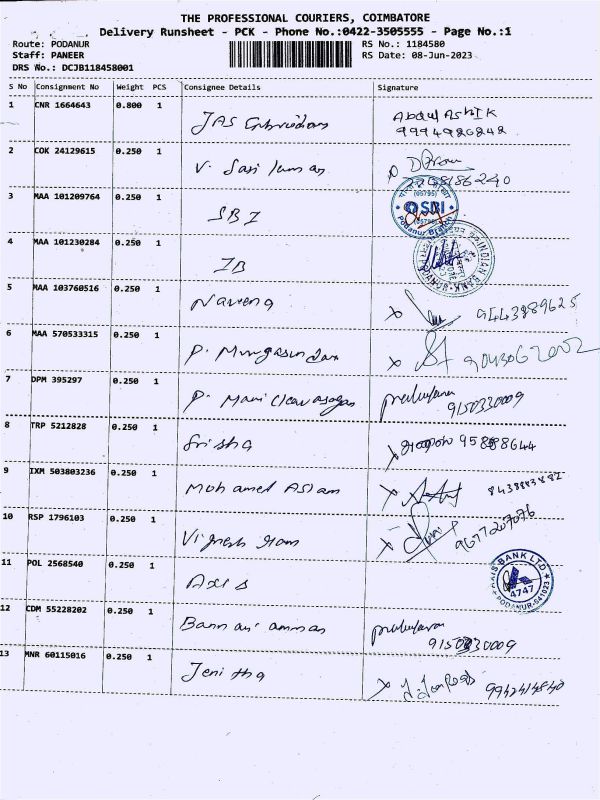 THE PROFESSIONAL COURIERS, COIMBATORE
Delivery Runsheet - PCK - Phone No.:0422-3505555 - Page No.:1
Route: PODANUR RS No.: 1184580
Staff: PANEER RS Date: 08-Jun-2023
DRS No.: DCJB118458001
S No Consignment No Weight PCS Consignee Details Signature
1 CNR 1664643 0.800 1 JAS Abdul Ashik
2 COK 24129615 0.250 1 V. Sasi kumar
3 MAA 101209764 0.250 1 SBI SBI Podanur Branch
4 MAA 101230284 0.250 1 IB INDIAN BANK
5 MAA 103760516 0.250 1 Naveena x 9443889625
6 MAA 570533315 0.250 1 P. Murugasundar x
7 DPM 395297 0.250 1 P. 9150330009
8 TRP 5212828 0.250 1 Srisha x
9 IXM 503803236 0.250 1 Mohamed Aslam x
10 RSP 1796103 0.250 1 Vignesh x 9677207076
11 POL 2568540 0.250 1 Axis AXIS BANK LTD. 4747 PODANUR-641023
12 CDM 55228202 0.250 1 Bannari amman 9150330009
13 MNR 60115016 0.250 1 Jenitha x